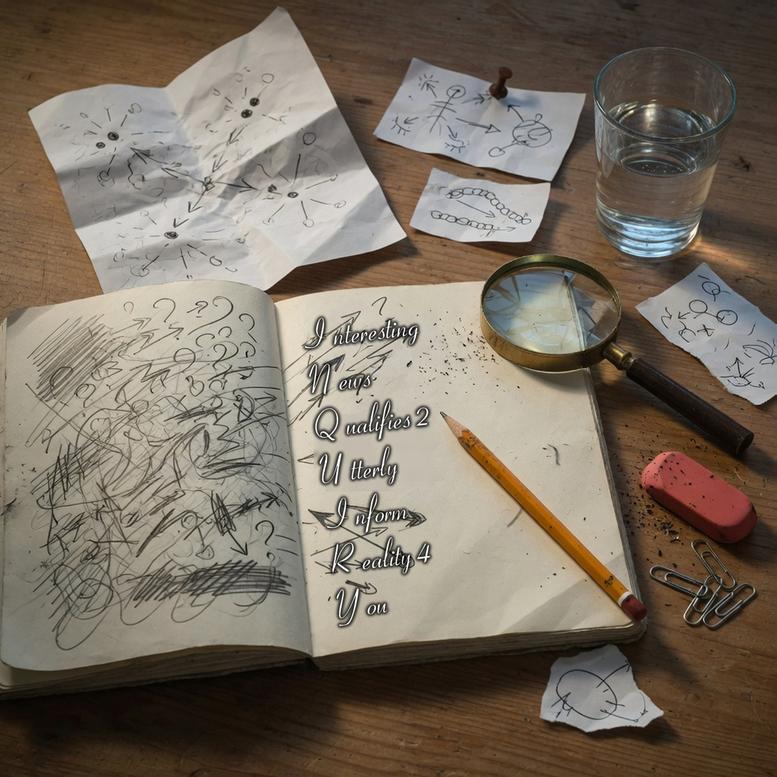 I nteresting
N ews
Q ualifies 2
U tterly
I nform
R eality 4
Y ou